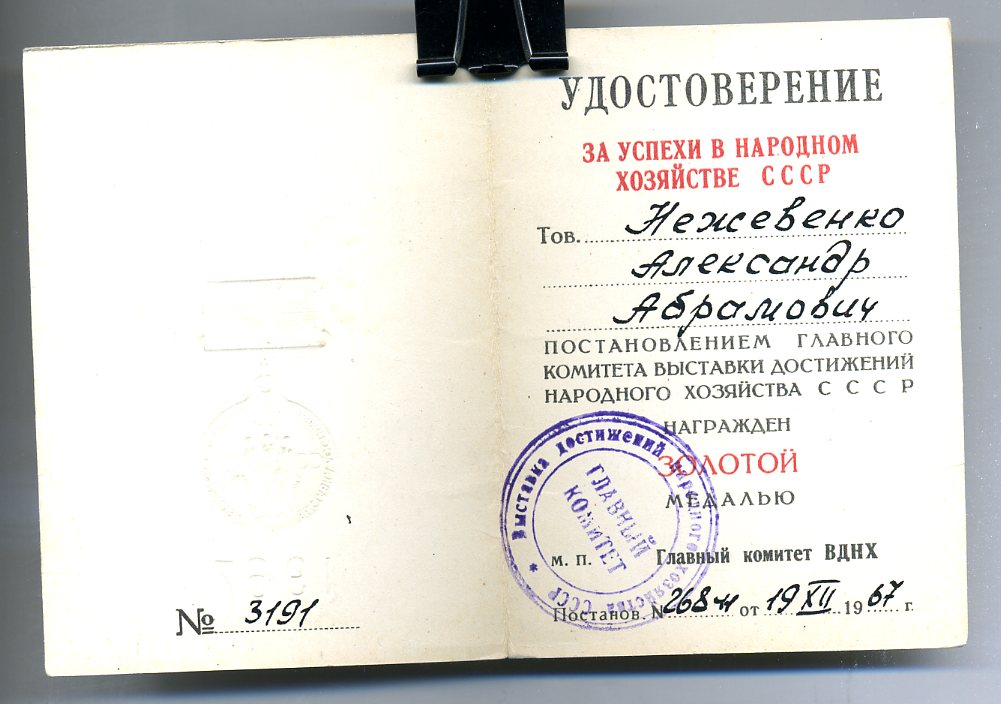 № 3191
УДОСТОВЕРЕНИЕ
ЗА УСПЕХИ В НАРОДНОМ
ХОЗЯЙСТВЕ СССР
Тов. Нежевенко
Александр
Абрамович
ПОСТАНОВЛЕНИЕМ ГЛАВНОГО
КОМИТЕТА ВЫСТАВКИ ДОСТИЖЕНИЙ
НАРОДНОГО ХОЗЯЙСТВА СССР
НАГРАЖДЕН
ЗОЛОТОЙ
МЕДАЛЬЮ
Выставка достижений народного хозяйства СССР *
ГЛАВНЫЙ
КОМИТЕТ
М. П. Главный комитет ВДНХ
Постанов. № 268-н от 19 XII 1967 г.